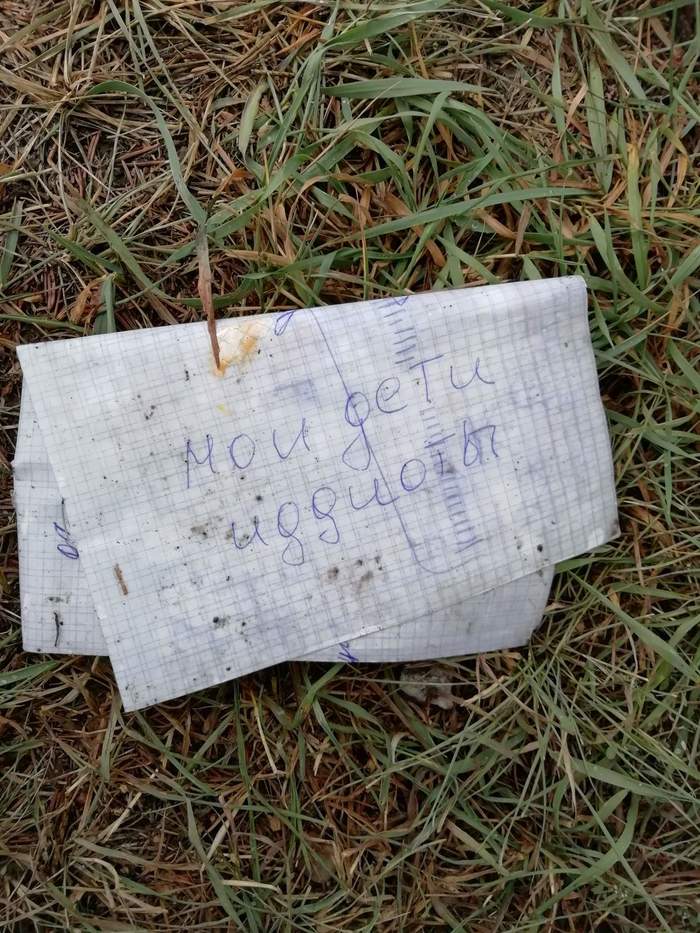 мои дети
иддиоты